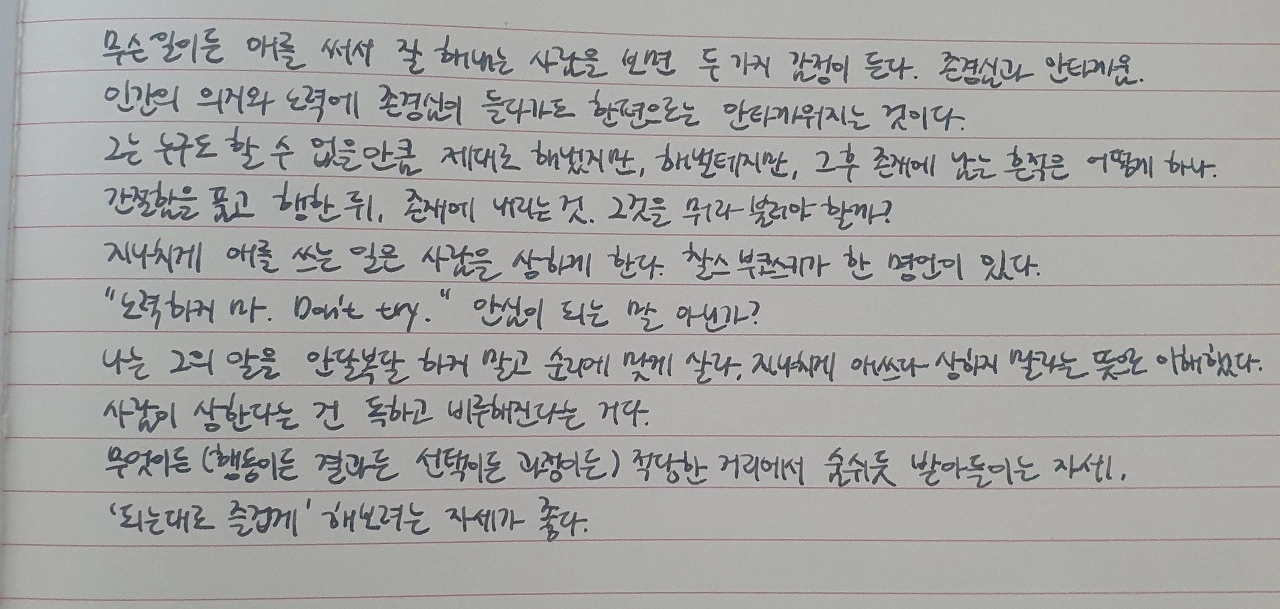 무슨 일이든 애를 써서 잘 해내는 사람을 보면 두 가지 감정이 든다. 존경심과 안타까움.
인간의 의지와 노력에 존경심이 들다가도 한편으로는 안타까워지는 것이다.
그는 누구도 할 수 없을만큼 제대로 해냈지만, 해낼테지만, 그 후 존재에 남는 흔적은 어떻게 하나.
간절함을 품고 행한 뒤, 존재에 내리는 것. 그것을 뭐라 불러야 할까?
지나치게 애를 쓰는 일은 사람을 상하게 한다. 찰스 부코스키가 한 명언이 있다.
"노력하지 마. Don't try." 안심이 되는 말 아닌가?
나는 그의 말을 안달복달 하지 말고 순리에 맞게 살라, 지나치게 애쓰다 상하지 말라는 뜻으로 이해했다.
사람이 상한다는 건 독하고 비루해진다는 거다.
무엇이든 (행동이든 결과든 선택이든 과정이든) 적당한 거리에서 숨쉬듯 받아들이는 자세.
'되는대로 즐겁게' 해보려는 자세가 좋다.